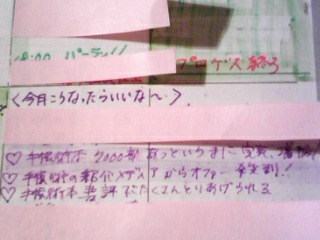 18:00 パーラー!!
プロゲス 終了
<今月こうなったらいいな〜>
♡手帳術本 7000部 あっというまに 完売、増刷!
♡手帳術の紹介 メディアからオファー 殺到!!
♡手帳術本 書評でたくさんとりあげられる